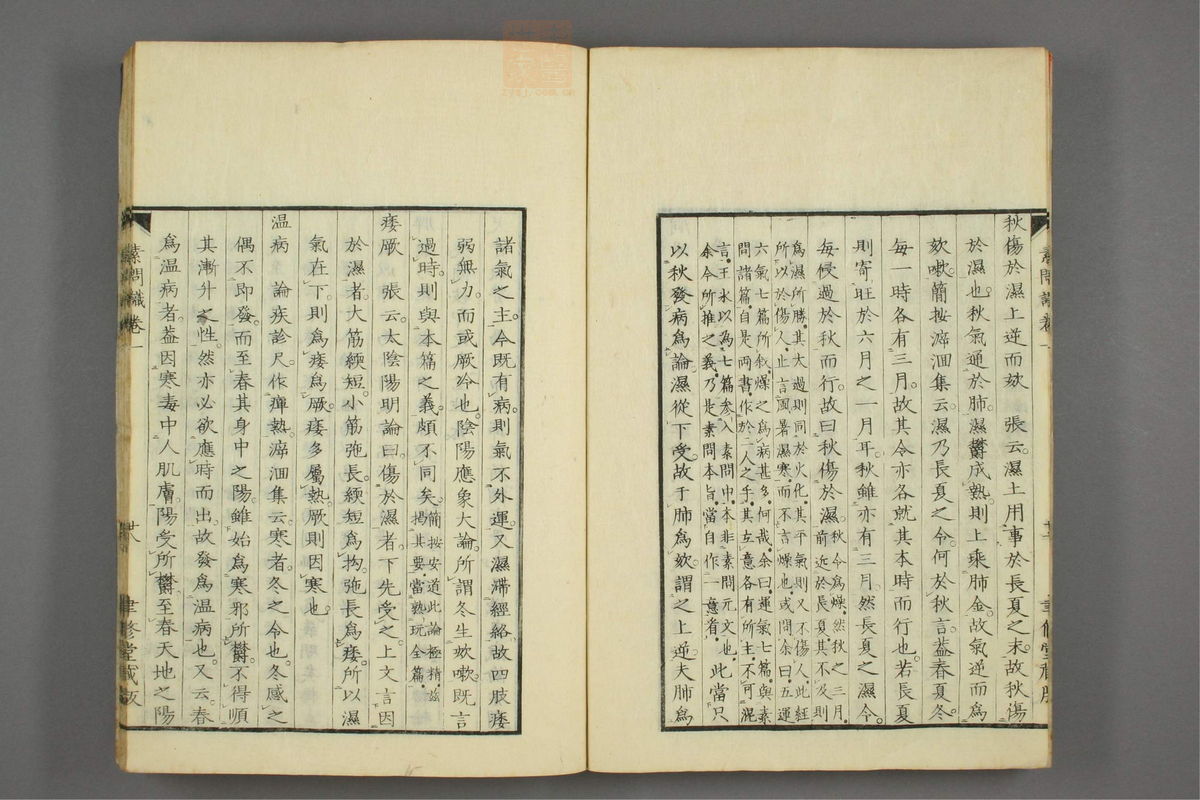 秋傷於濕上逆而欬　張云。濕土用事於長夏之末。故秋傷
於濕也。秋氣通於肺。濕鬱成熱。則上乘肺金。故氣逆而爲
欬嗽。簡按溯洄集云。濕乃長夏之令。何於秋言。蓋春夏冬
每一時各有三月。故其令亦各就其本時而行也。若長夏
則寄旺於六月之一月耳。秋雖亦有三月。然長夏之濕令。
每侵過於秋而行。故曰秋傷於濕。
秋令爲燥。然秋之三月。
前近於長夏。其不及則
爲濕所勝。其太過則同於火化。其平氣則又不傷人。此經
所以於傷人。止言風暑濕寒。而不言燥也。或問余曰。五運
六氣七篇所敘燥之爲病甚多。何哉。余曰。運氣七篇。與素
問諸篇。自是兩書。作於二人之手。其立意各有所主。不可混
言。王氷以為七篇參入素問中。本非素問元文也。
余今所推之義。乃是素問本旨。當自作一意看。
此當只
以秋發病爲論。濕從下受。故于肺爲欬。謂之上逆。夫肺爲
素問識卷一
聿修堂藏版
諸氣之主。今既有病。則氣不外運。又濕滯經絡。故四肢痿
弱無力。而或厥冷也。陰陽應象大論。所謂冬生欬嗽。既言
過時。則與本篇之義。頗不同矣。
簡按安道此論極精。茲
揭其要。當熟玩全篇。
痿厥　張云。太陰陽明論曰。傷於濕者。下先受之。上文言因
於濕者。大筋緛短。小筋弛長。緛短爲拘。弛長爲痿。所以濕
氣在下。則爲痿爲厥。痿多屬熱。厥則因寒也。
温病　論疾診尺。作癉熱。溯洄集云。寒者。冬之令也。冬感之
偶不即發。而至春其身中之陽。雖始爲寒邪所鬱。不得順
其漸升之性。然亦必欲應時而出。故發爲温病也。又云。春
爲温病者。蓋因寒毒中人肌膚。陽受所鬱。至春天地之陽
素問識卷一
廿八
聿修堂藏版